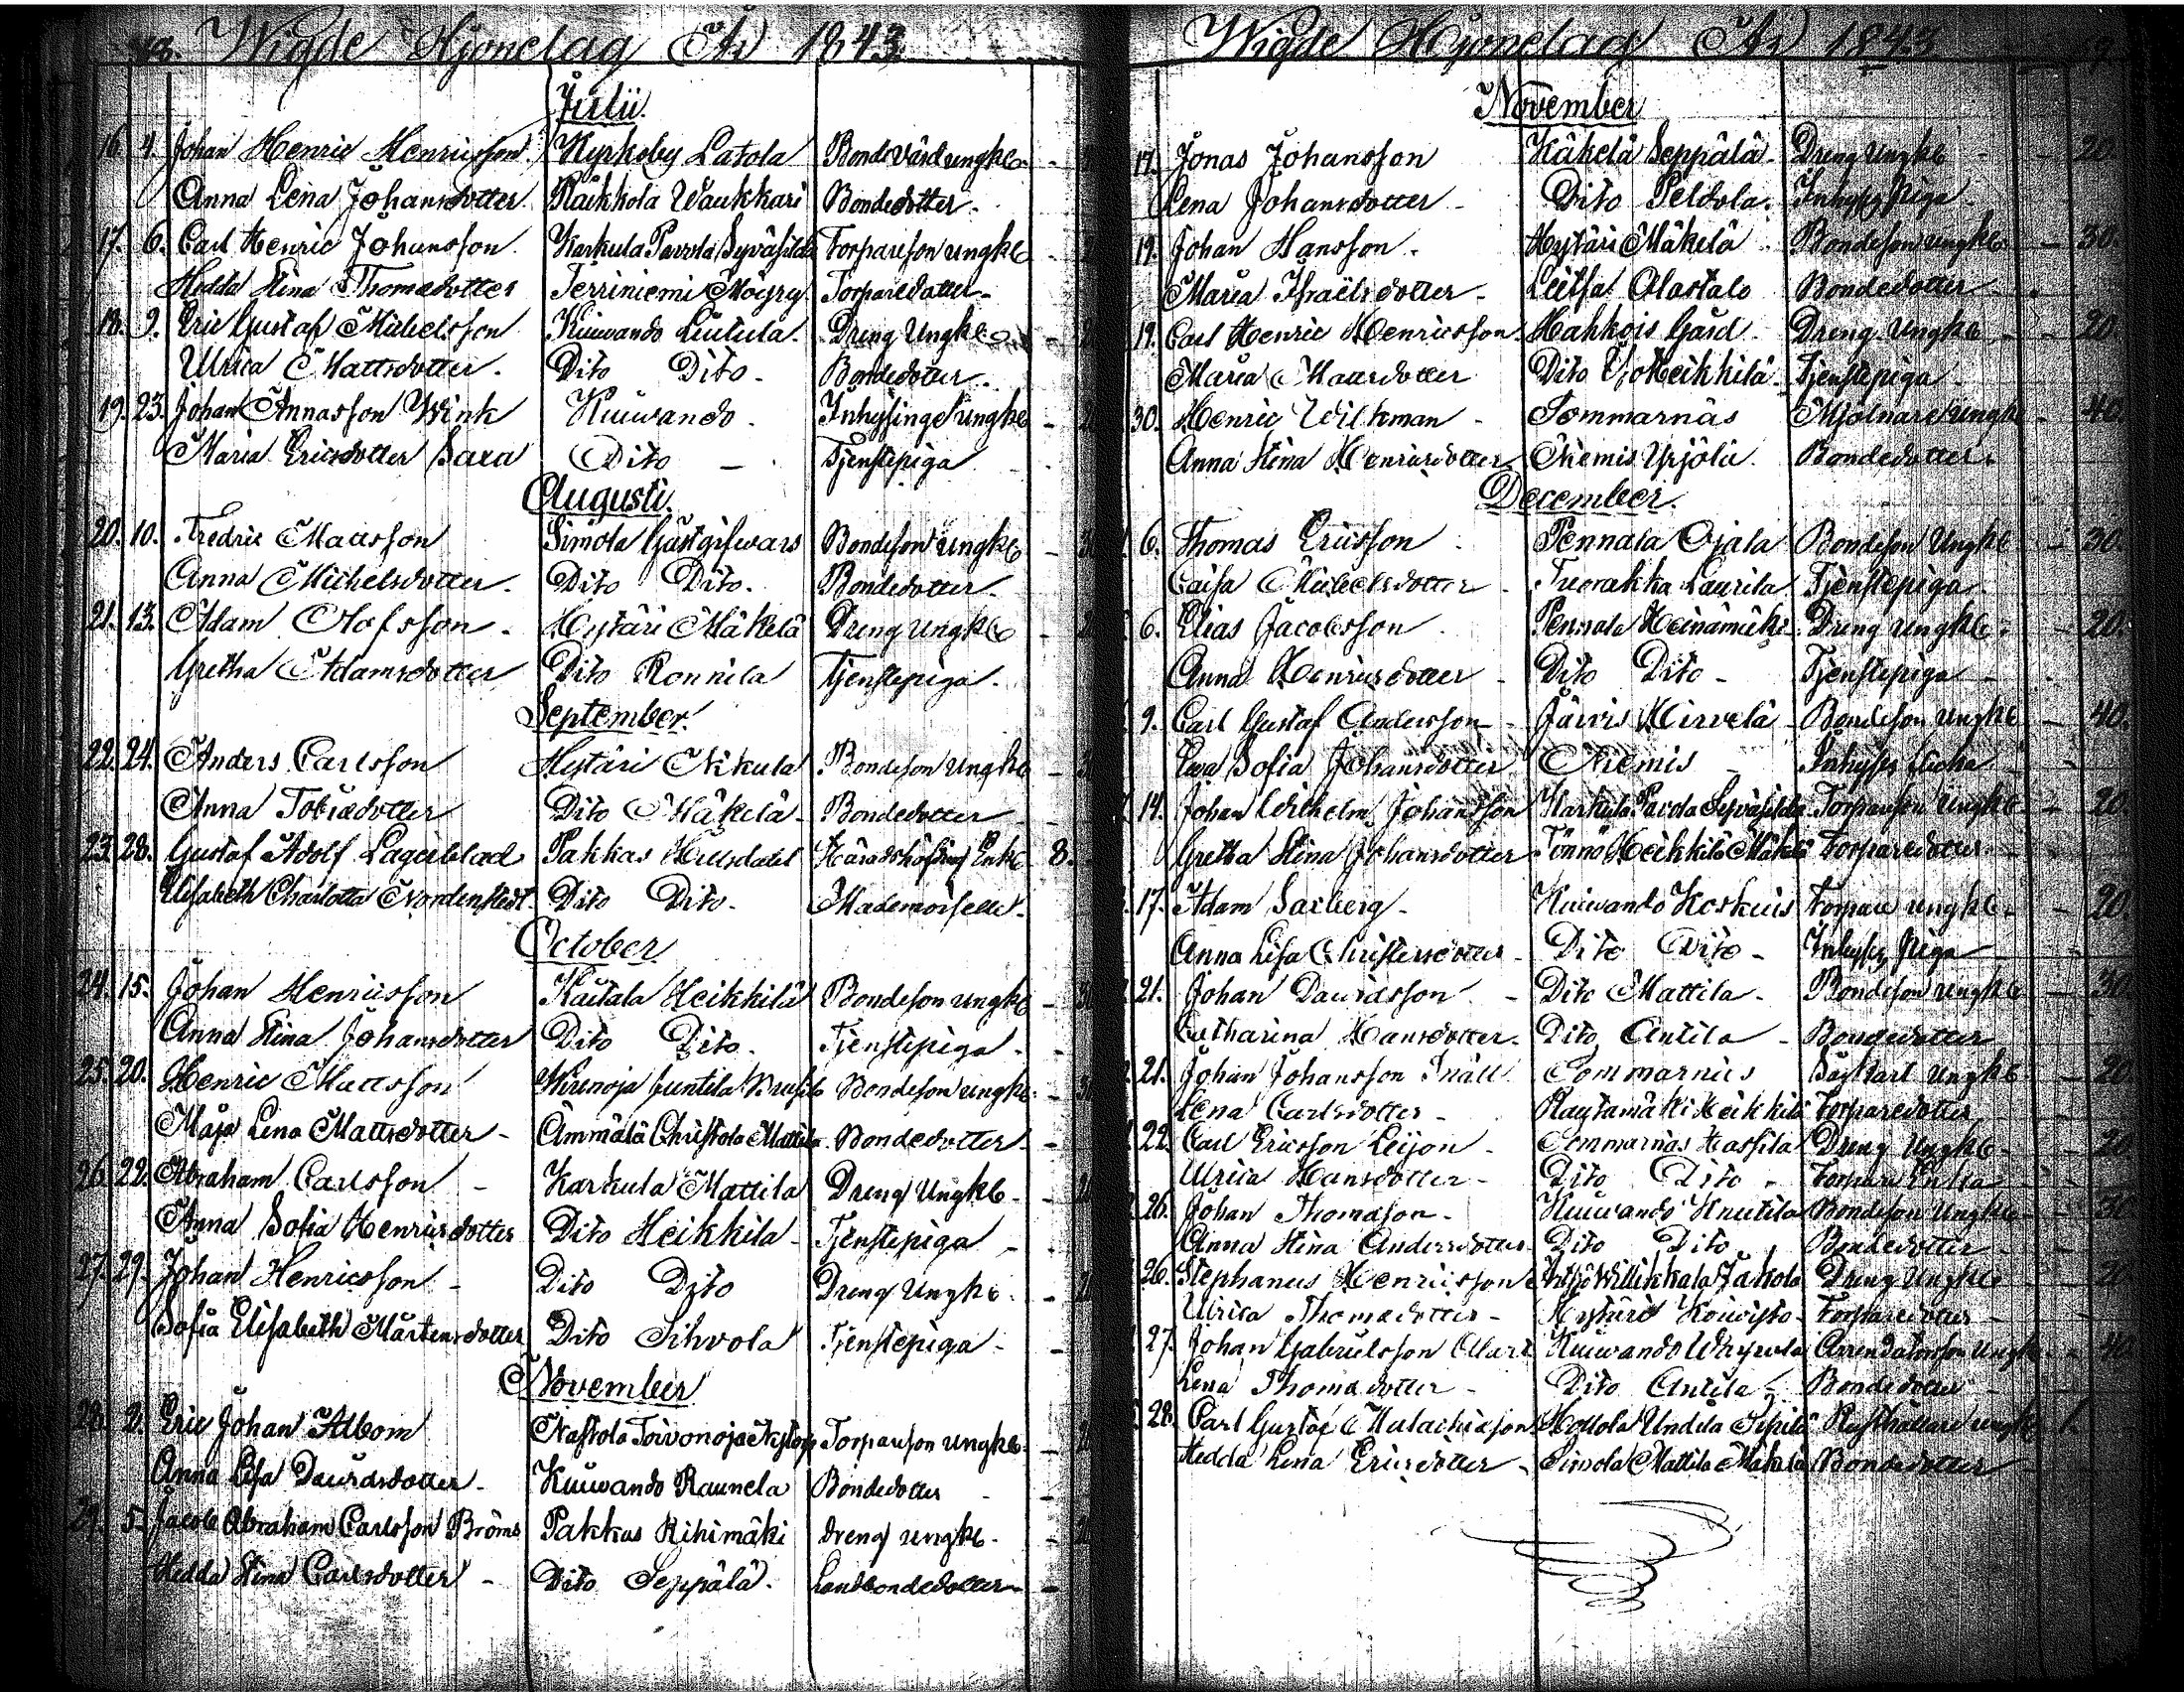 48. Wigde Hjonelag År 1843.
Julii.
16. 4. Johan Henric Henricsson Kyrkoby Latola Bonde Värd ungkl
Anna Lena Johansdotter Räikkola Waukkari Bondedotter
17. 6. Carl Henric Johansson Karkula Pavola Syväsilda Torpareson ungkl
Hedda Stina Thomedotter Terriniemi Möyry Torparedotter
18. 9. Eric Gustaf Michelsson Kuiwando Liutula Dreng Ungkl
Ulrica Mattsdotter Dito Dito Bondedotter
19. 23. Johan Annasson Wink Kuiwando Inhysinge Ungkl
Maria Ericsdotter Saxa Dito Tjenstepiga
Augusti.
20. 10. Fredric Mattsson Simola Gästgifwars Bondeson Ungkl
Anna Michelsdotter Dito Dito Bondedotter
21. 13. Adam Olofsson Hytäri Mäkelä Dreng Ungkl
Gretha Adamsdotter Dito Ronnila Tjenstepiga
September.
22. 24. Anders Carlsson Hytäri Nikula Bondeson Ungkl
Anna Tobiedotter Dito Mäkelä Bondedotter
23. 28. Gustaf Adolf Lagerblad Pakkas Häradshöfding Enkl 8.
Elisabeth Charlotta Nordenstedt Dito Dito Mademoiselle
October
24. 15. Johan Henricsson Kaitala Heikkilä Bondeson ungkl
Anna Stina Johansdotter Dito Dito Tjenstepiga
25. 20. Henric Mattsson Wirenoja Juntila Bondeson ungkl
Maja Lena Mattsdotter Ämmälä Christola Mattila Bondedotter
26. 22. Abraham Carlsson Karkula Mattila Dreng Ungkl
Anna Sofia Henricsdotter Dito Heikkila Tjenstepiga
27. 29. Johan Henricsson Dito Dito Dreng Ungkl
Sofia Elisabeth Mårtensdotter Dito Sihvola Tjenstepiga
November
28. 2. Eric Johan Albom Nastola Toivonoja Torpareson ungkl
Anna Lisa Davidsdotter Kuiwando Raunela Bondedotter
29. 5. Jacob Abraham Carlsson Bröms Pakkas Rihimäki Dreng ungkl
Hedda Stina Carlsdotter Dito Seppälä Landbondedotter
Wigde Hjonelag År 1843
November
17. Jonas Johansson Käkelä Seppälä Dreng Ungkl
Lena Johansdotter Dito Peldola Inhyses piga
19. Johan Hansson Hytäri Mäkelä Bondeson ungkl 30.
Maria Israelsdotter Leitsa Alastalo Bondedotter
19. Carl Henric Henricsson Hahkois Gård Dreng Ungkl 20.
Maria Mattsdotter Dito Tjenstepiga
30. Henric Wilkman Sommarnäs Mjölnare Ungkl 40.
Anna Stina Henricsdotter Niemis Yrjölä Bondedotter
December.
6. Thomas Ericsson Pennala Ojala Bondeson Ungkl 30.
Caisa Michelsdotter Tuorakka Laurila Tjenstepiga
6. Elias Jacobsson Pennala Heinämäki Dreng Ungkl 20.
Anna Henricsdotter Dito Dito Tjenstepiga
9. Carl Gustaf Andersson Järvis Hirvelä Bondeson ungkl 40.
Ewa Sofia Johansdotter Niemis Inhyses flicka
14. Johan Wilhelm Johansson Karkula Pavola Syväsilda Torpareson Ungkl 20.
Gretha Stina Johansdotter Tönnö Heikkilä Mäkelä Torparedotter
17. Adam Saxberg Kuiwando Koskuis Torpare ungkl 20.
Anna Lisa Christersdotter Dito Dito Inhyses piga
21. Johan Davidsson Dito Mattila Bondeson ungkl 30.
Catharina Hansdotter Dito Antila Bondedotter
21. Johan Johansson Snäll Sommarnäs Ungkl 20
Lena Carlsdotter Heikkilä Torparedotter
22. Carl Ericsson Leijon Sommarnäs Hassila Dreng Ungkl 20
Ulrica Hansdotter Dito Dito Torpare Enka
26. Johan Thomasson Kuiwando Knutila Bondeson Ungkl 30
Anna Stina Andersdotter Dito Dito Bondedotter
26. Stephanus Henricsson Artsjö Willikkala Dreng Ungkl 20
Ulrica Thomedotter Hytäri Koiwisto Torparedotter
27. Johan Gabrielsson Kuiwando Arrendatorson Ungkl 40
Lena Thomedotter Dito Antila Bondedotter
28. Carl Gustaf Malachiasson Hollola Undila Rusthållare ungkl
Hedda Lena Ericsdotter Simola Mattila Mäkelä Bondedotter